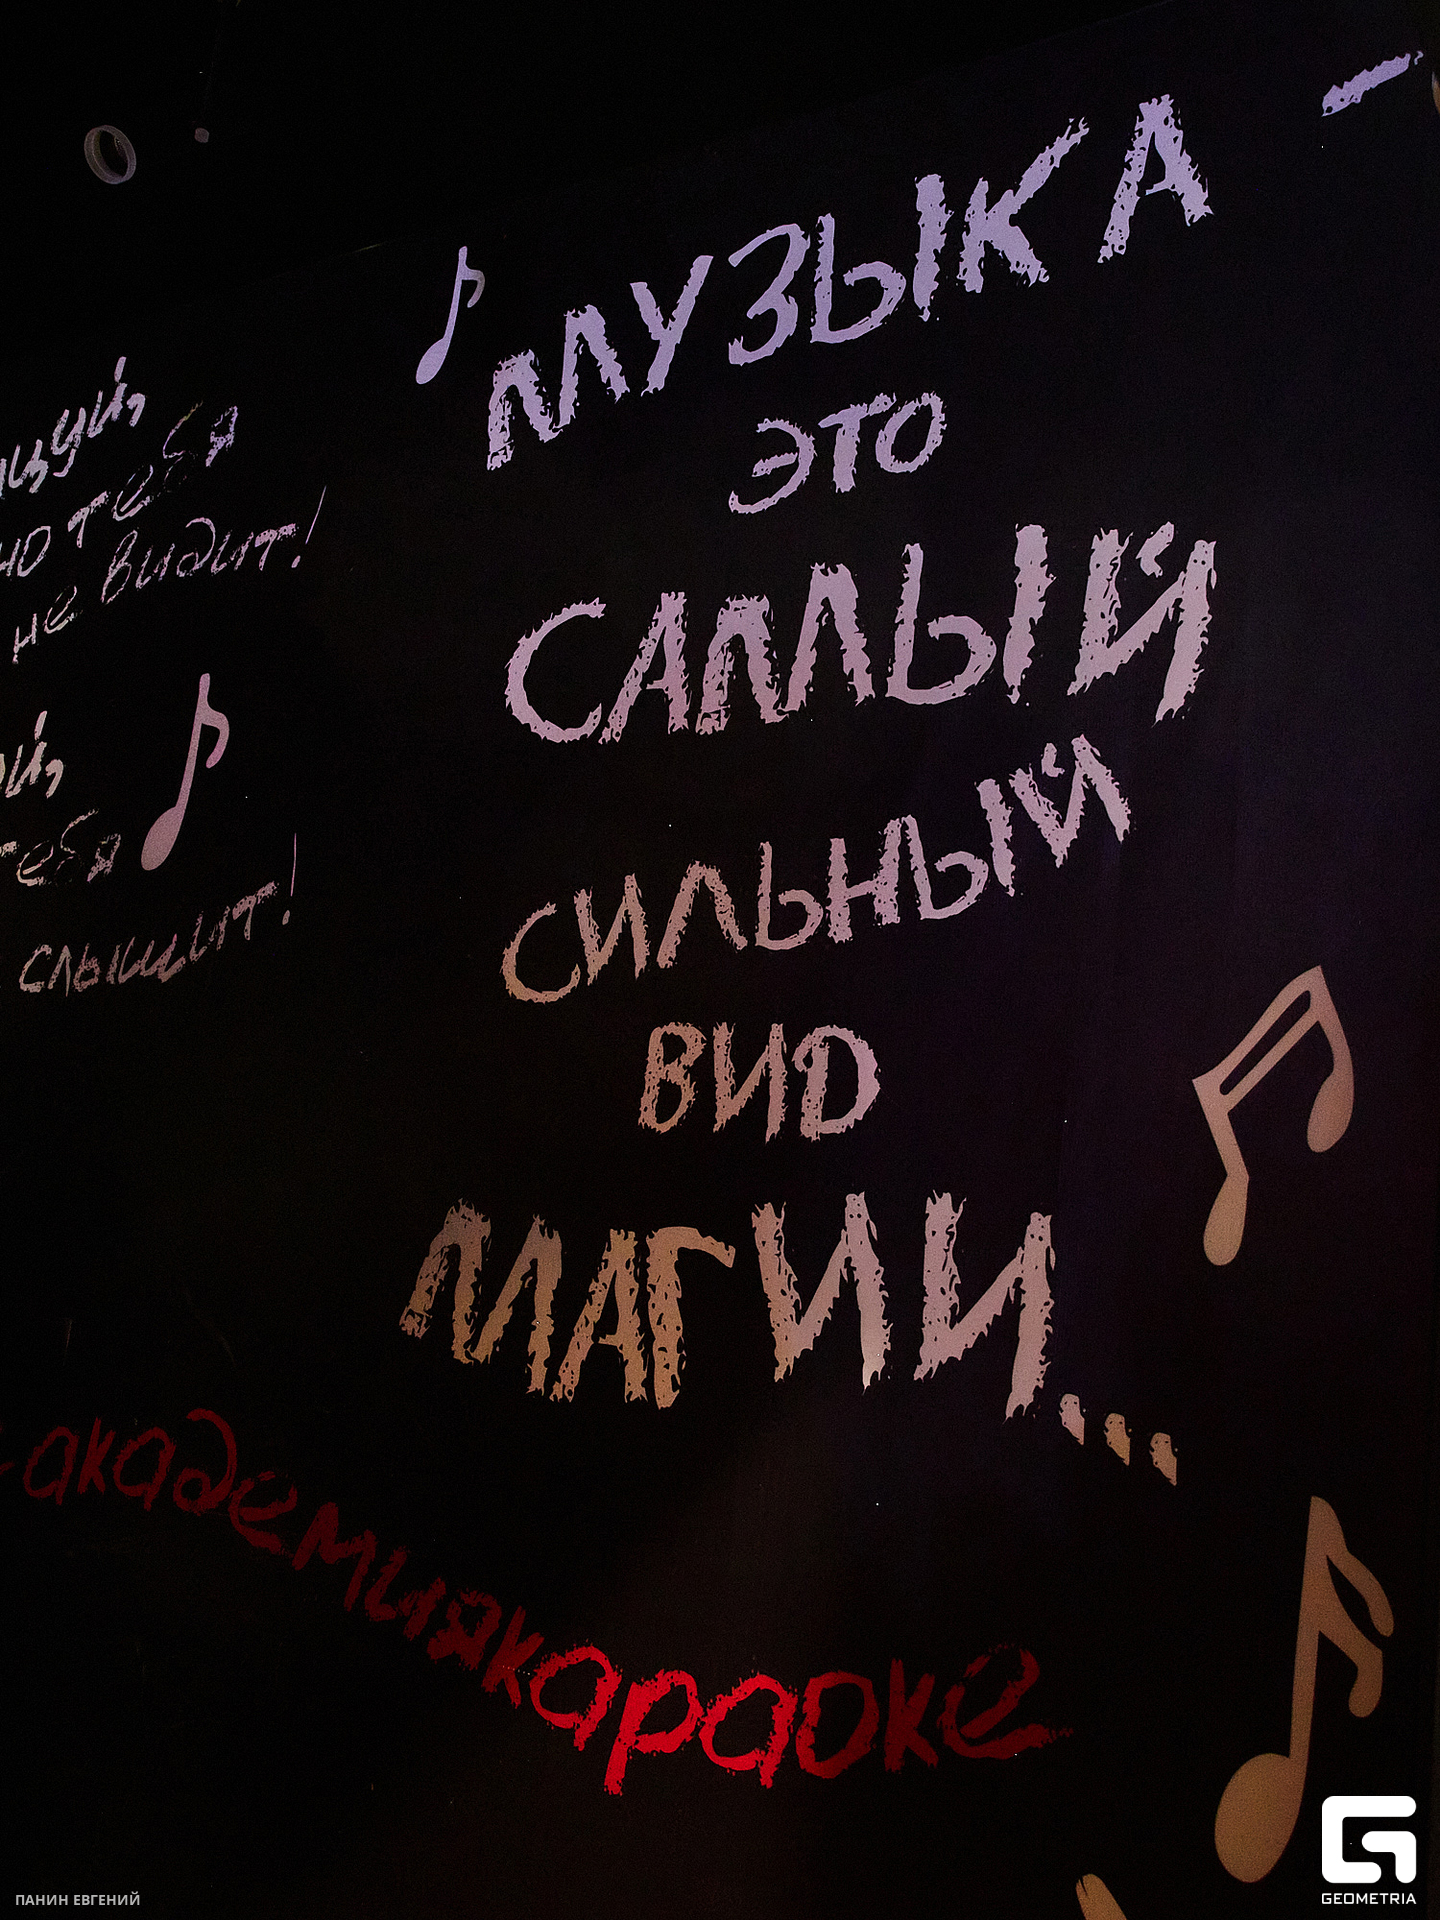 МУЗЫКА -
ЭТО
САМЫЙ
СИЛЬНЫЙ
ВИД
МАГИИ...
тебя
не видит!
тебя
слышит!
академиякараоке
ПАНИН ЕВГЕНИЙ
GEOMETRIA